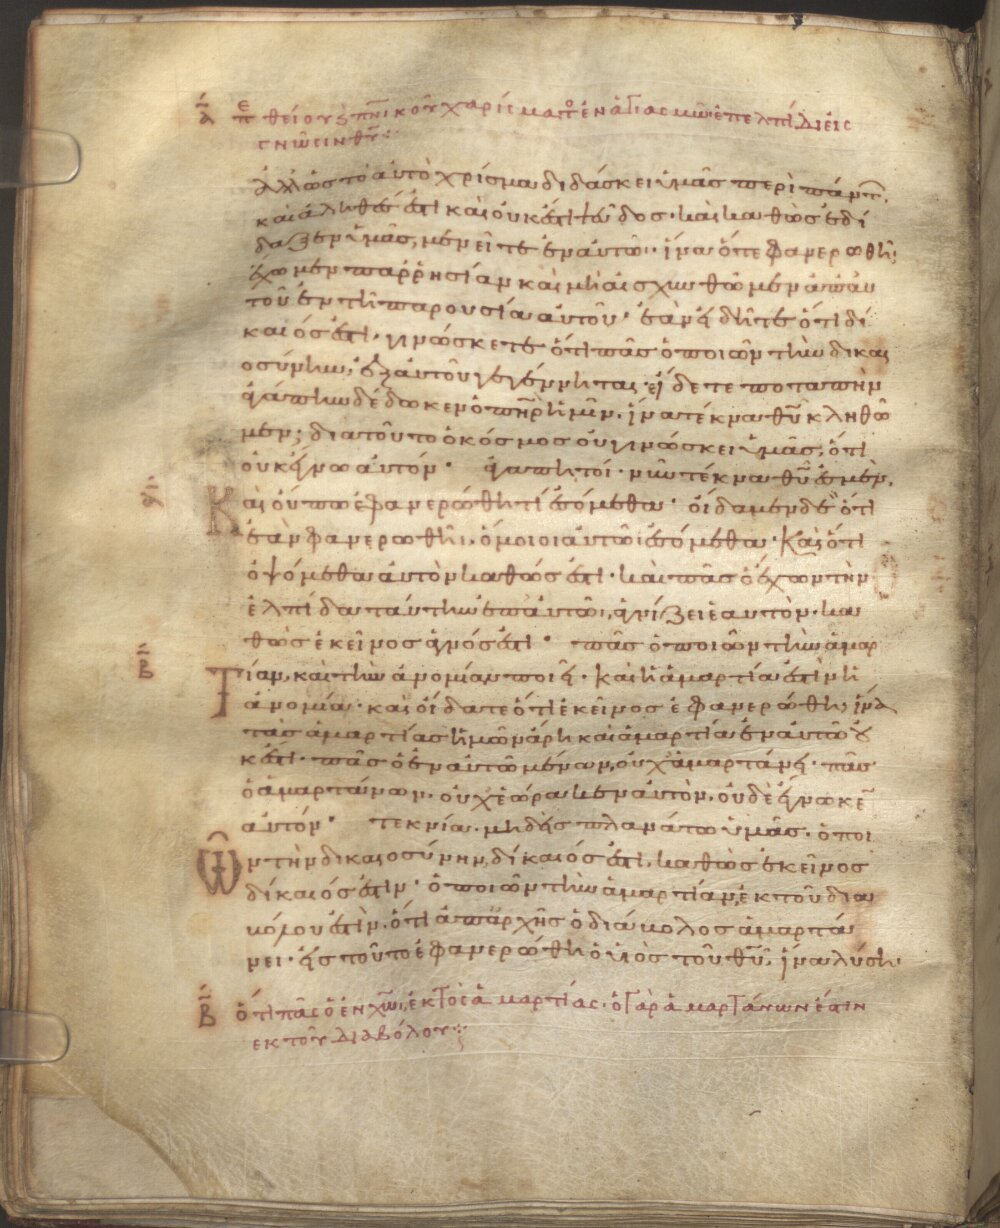 ᾱ πε θείου ϛ πνικοῦ χαρίσματο ἐν ἁγιασμῶ ἐπελπίδι εἰς
γνῶσιν θῦ:
ἀλλ ὡς τὸ αὐτὸ χρίσμα διδάσκει ὑμᾶς περὶ πάντ,
καὶ ἀληθές ἐστι καὶ οὐκ ἔστι ψεῦδος· καὶ καθὼς ἐδί
δαξεν ὑμᾶς, μένειτε ἐν αὐτῶ· ἵνα ὅτε φανερωθῆ,
ἔχωμεν παρρησίαν καὶ μὴ αἰσχυνθῶμεν ἀπ αὐ
τοῦ ἐν τῆ παρουσία αὐτοῦ· ἐὰν εἰδῆτε ὅτι δί
καιός ἐστι, γινώσκετε ὅτι πᾶς ὁ ποιῶν τὴν δικαι
οσύνην, ἐξ αὐτοῦ γεγέννηται· ἴδετε ποταπὴν
ἀγάπην δέδωκεν ὁ πηρ ἡμῖν, ἵνα τέκνα θῦ κληθῶ
μεν; διατοῦτο ὁ κόσμος οὐ γινώσκει ὑμᾶς, ὅτι
οὐκ ἔγνω αὐτόν· ἀγαπητοί· νῦν τέκνα θῦ ἐσμὲν,
Καὶ οὔπω ἐφανερώθη τί ἐσόμεθα· οἴδαμεν δὲ ὅτι
ἐὰν φανερωθῆ, ὅμοιοι αὐτῶ ἐσόμεθα· Καὶ ὅτι
ὀψόμεθα αὐτὸν καθώς ἐστι· καὶ πᾶς ὁ ἔχων τὴν
ἐλπίδα ταύτην ἐπ αὐτῶ, ἁγνίζει ἑαυτὸν· κα
θὼς ἐκεῖνος ἁγνός ἐστι· πᾶς ὁ ποιῶν τὴν ἁμαρ
β̄ Τίαν, καὶ τὴν ἀνομίαν ποιεῖ· καὶ ἡ ἁμαρτία ἐστὶν ἡ
ἀνομία· καὶ οἴδατε ὅτι ἐκεῖνος ἐφανερώθη, ἵνα
τὰς ἁμαρτίας ἡμῶν ἄρη καὶ ἁμαρτία ἐν αὐτῶ οὐ
κ ἔστι· πᾶς ὁ ἐν αὐτῶ μένων, οὐχ ἁμαρτάνει· πᾶς
ὁ ἁμαρτάνων, οὐχ ἑώρακεν αὐτὸν, οὐδὲ ἔγνωκε
αὐτόν· τεκνία· μηδεὶς πλανάτω ὑμᾶς· ὁ ποι
ῶν τὴν δικαιοσύνην, δίκαιός ἐστι, καθὼς ἐκεῖνος
δίκαιός ἐστιν· ὁ ποιῶν τὴν ἁμαρτίαν, ἐκ τοῦ δια
βόλου ἐστὶν, ὅτι ἀπ ἀρχῆς ὁ διάβολος ἁμαρτά
νει· εἰς τοῦτο ἐφανερώθη ὁ υἱὸς τοῦ θῦ, ἵνα λύση
β̄ ὅτι πᾶς ὁ ἐν χω, ἐκτὸς ἁμαρτίας· ὁ γὰρ ἁμαρτάνων ἐστιν
ἐκ τοῦ διαβόλου: